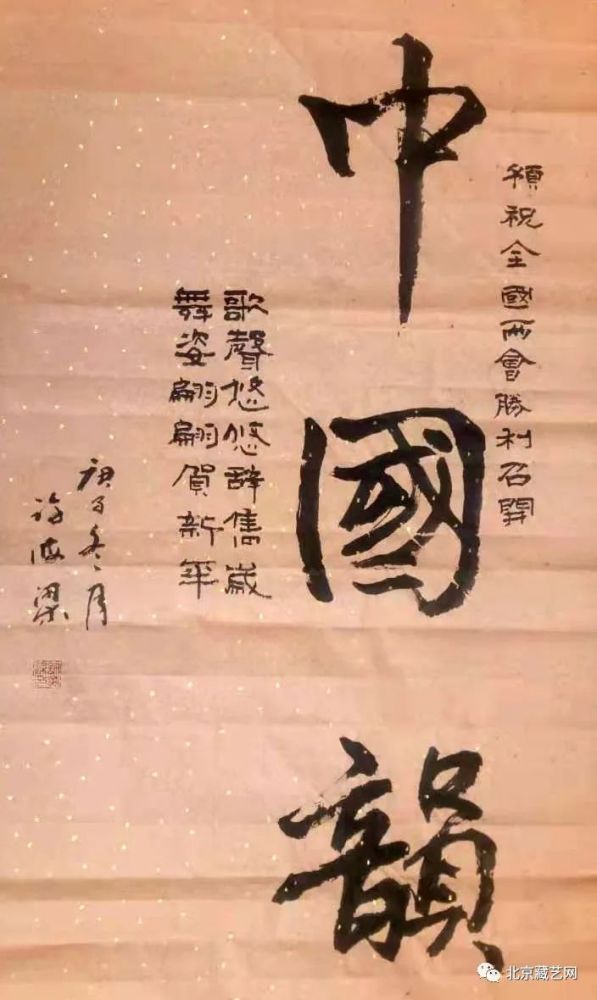 預祝全國兩會勝利召開
中國韻
歌聲悠悠辭舊歲
舞姿翩翩賀新年
庚子冬月
许海梁
北京藏艺网